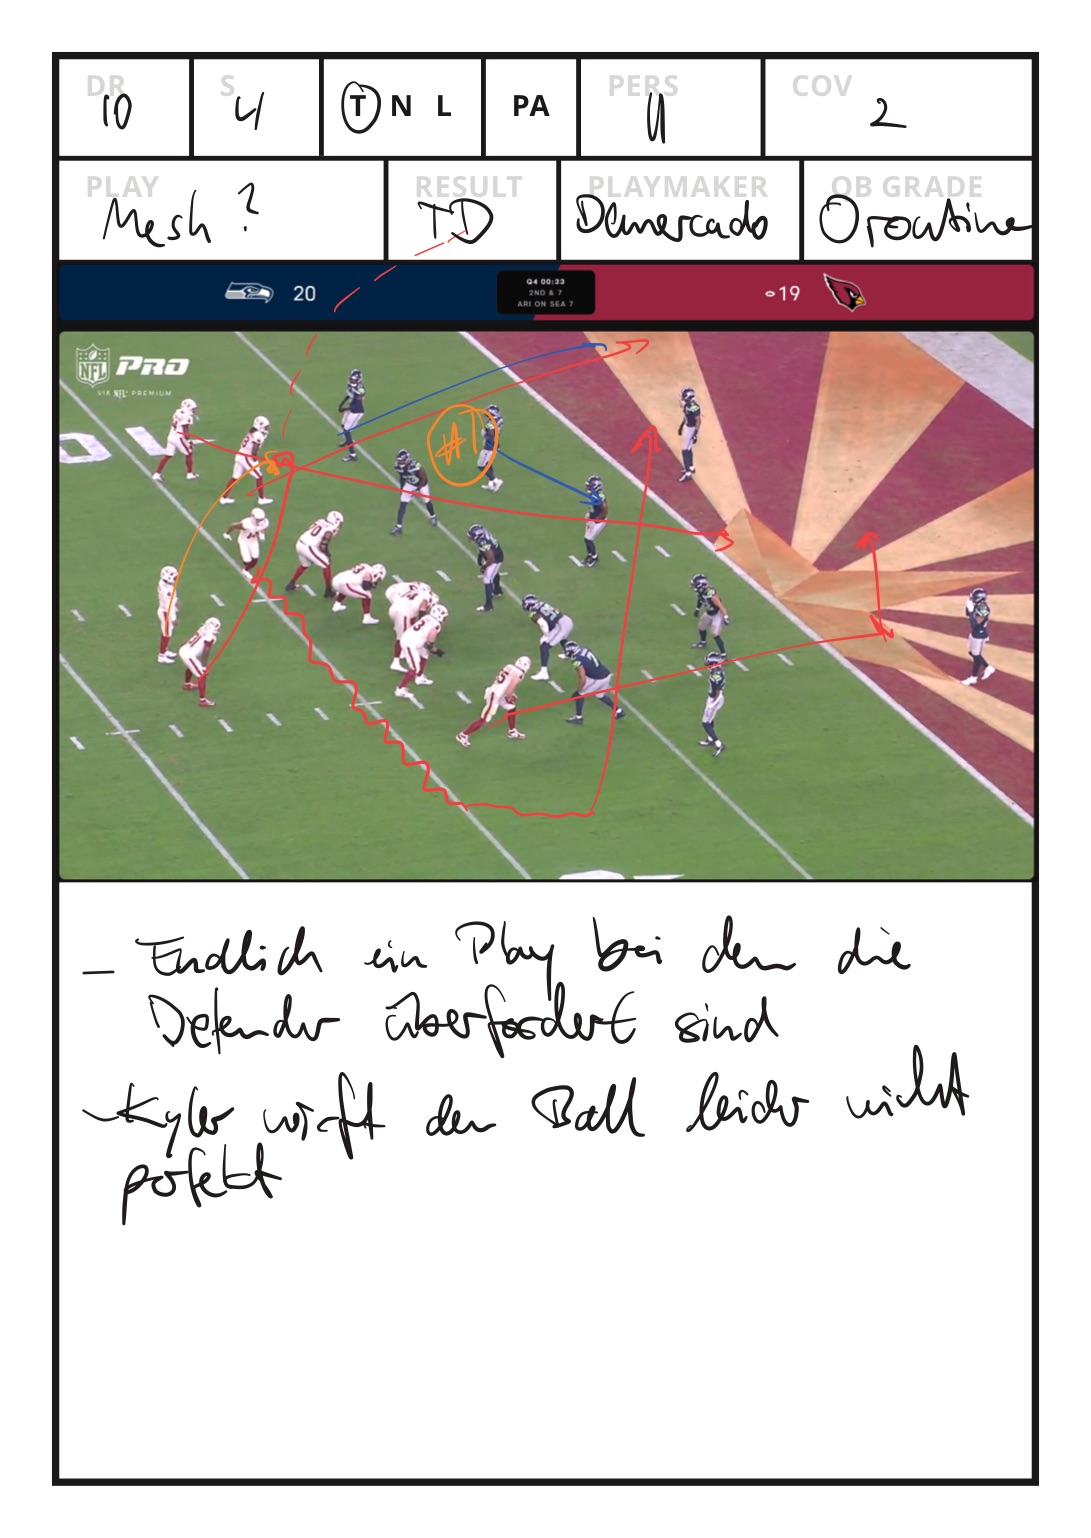 DR 10
S 4
T N L
PA
PERS 11
COV 2
PLAY Mesh ?
RESULT TD
PLAYMAKER Demercado
QB GRADE 0 routine
20
Q4 00:33
2ND & 7
ARI ON SEA 7
19
NFL PRO
VIA NFL+ PREMIUM
#1
- Endlich ein Play bei dem die
Defender überfordert sind
- Kyler wirft den Ball leider nicht
perfekt